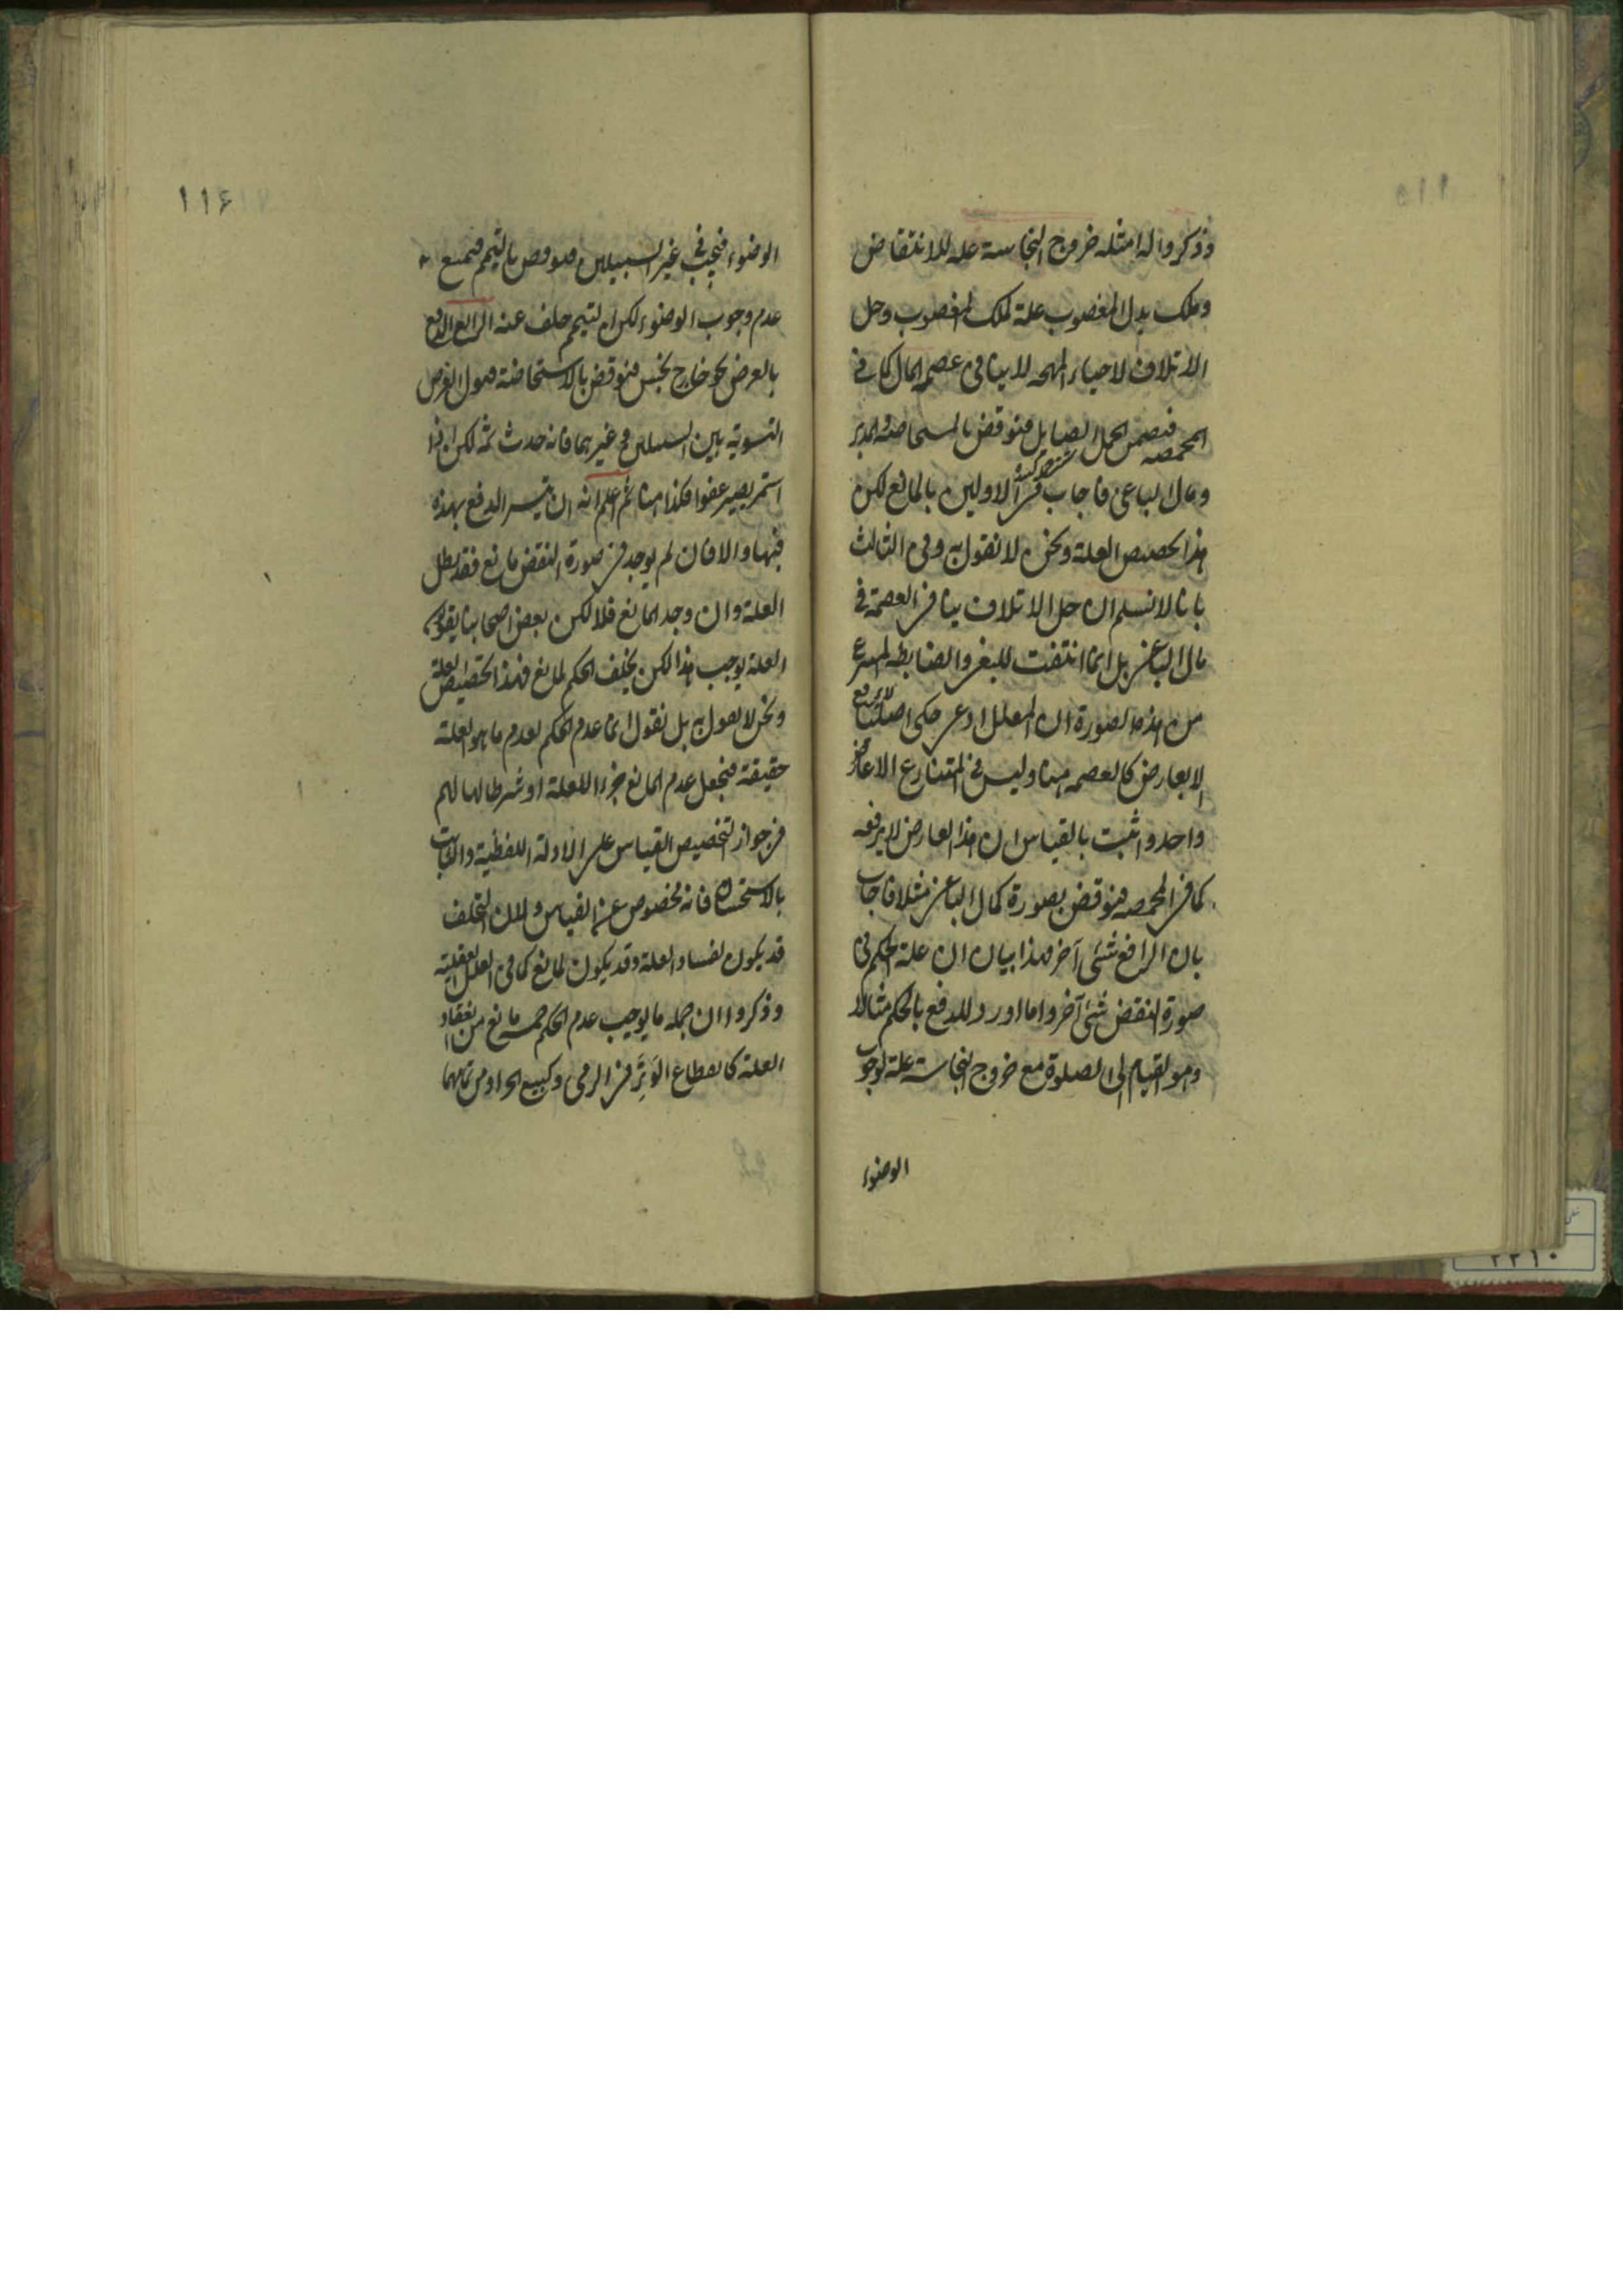 وذكروا له امثلة خروج النجاسة علة للانتقاض
وملك بدل المغصوب علة لملك المغصوب وحل
الاتلاف لاحياء المهجة لا ينافي عصمة المال كما في
المخمصة فيضمن الجمل الصايل فنوقض بالمستحاضة والمدبر
ومال الباغي فاجاب في الاولين بالمانع لكن
هذا تخصيص العلة ونحن لا نقول به وفي الثالث
بانا لا نسلم ان حل الاتلاف ينافي العصمة في
مال الباغي بل انما انتفت للبغي والضابطة المنتزع
من هذه الصورة ان المعلل ادعى حكما اصليا لا يرفع
الا بعارض كالعصمة هنا وليس في المتنازع الا عارض
واحد واثبت بالقياس ان هذا العارض لا يرفعه
كما في المخمصة فنوقض بصورة كمال الباغي مثلا فاجاب
بان الرافع شئ آخر فهذا بيان ان علة الحكم في
صورة النقض شئ آخر واما اورد للدفع بالحكم مثالا
وهو القيام الى الصلوة مع خروج النجاسة علة لوجوب
الوضوء
١١۶
الوضوء فيجب في غير السبيلين فنوقض بالتيمم فيمنع
عدم وجوب الوضوء لكن التيمم خلف عنه الرابع الدفع
بالغرض نحو خارج نجس فنوقض بالاستحاضة فيقول الغرض
التسوية بين السبيلين وغيرهما فانه حدث ثمة لكن اذا
استمر يصير عفوا فكذا هنا ثم اعلم انه ان تيسر الدفع بهذه
فبها والا فان لم يوجد في صورة النقض مانع فقد بطل
العلة وان وجد المانع فلا لكن بعض اصحابنا يقولون
العلة يوجب هذا لكن يخلف الحكم لمانع فهذا تخصيص العلة
ونحن لا نقول به بل نقول انما عدم الحكم لعدم ما هو العلة
حقيقة فنجعل عدم المانع جزءا للعلة او شرطا لها لهم
في جواز التخصيص القياس على الادلة اللفظية والثابت
بالاستحسان فانه مخصوص عن القياس ولان التخلف
قد يكون لفساد العلة وقد يكون لمانع كما في العلل العقلية
وذكروا ان جملة ما يوجب عدم الحكم خمسة مانع من انعقاد
العلة كانقطاع الوتر في الرمي وكبيع الحر او من تمامها